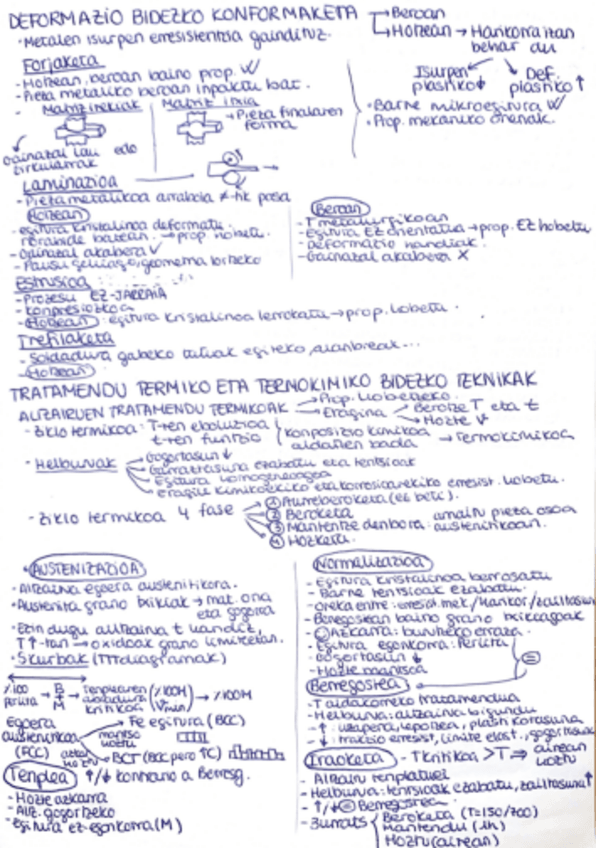 DEFORMAZIO BIDEZKO KONFORMAKETA → Beroan
↳ Hotzean → Harikorra izan behar du
• Metalen isurpen erresistentzia gaindituz.
Isurpen plastiko ↓
Def. plastiko ↑
• Barne mikroegitura
• Prop. mekaniko onenak.
Forjaketa
- Hotzean, beroan baino prop.
- Pieza metaliko beroan inpaktu bat.
- Matrize irekiak
Gainazal lau edo zirkularrak
Matrize itxia
→ Pieza finalaren forma
Laminazioa
- Pieza metalikoa arrabola ≠-tik pasa
Hotzean
- egitura kristalinoa deformatu
norabide batean. → prop hobetu.
- Gainazal akabera ✓
- geometria lortzeko
Beroan
- T metalurgikoan
- Egitura EZ orientatua → prop. EZ hobetu
- Deformazio handiak.
- Gainazal akabera X
Estrusioa
- Prozesu EZ-JARRAIA
- Konpresiozkoa
- Hotzean : egitura kristalinoa lerrokatu → prop. hobetu.
Trefilaketa
- Soldadura gabeko tutuak egiteko, alanbreak...
- Hotzean
TRATAMENDU TERMIKO ETA TERMOKIMIKO BIDEZKO TEKNIKAK
ALTZAIRUEN TRATAMENDU TERMIKOAK → Prop. hobetzeko.
→ Eragina → Berotze T eta t
→ Hozte V
- Ziklo termikoa · T-ren eboluzioa
t-ren funtzio
konposizio kimikoa aldatzen bada → Termokimikoa
- Helburuak → Gogortasun ↓
→ ezabatu eta tentsioak
→ Egitura homogeneoagoa
→ eragile kimikoekiko eta korrosioarekiko erresist. hobetu.
- Ziklo termikoa 4 fase → ① Aurreberoketa (ez beti).
② Beroketa
③ Mantentze denbora: amaitu pieza osoa austenitikoan.
④ Hozketa.
• AUSTENIZAZIOA
- Altzairua egoera austenitikora.
- Austenita grano txikiak → mat. ona eta gogorra
- Ezin dugu altzairua t handiz,
T↑-tan → oxidoak grano limiteetan.
• Skurbak (TTT diagramak)
%100 perlita → B → M → tenplearen abiadura kritikoa (%100M) (Vmin) → %100M
Egoera austenitikoa (FCC)
→ Fe egitura (BCC)
→ BCT (BCC pero ↑C)
Tenplea ↑/↓ kontrario a Berreg.
- Hozte azkarra
- Altz. gogortzeko
- Egitura ez-egonkorra (M)
Normalizazioa
- Egitura kristalinoa berrosatu
- Barne tentsioak ezabatu.
- Oreka entre: erresist. mek/Harikor/zailtasun
- Beregostean baino grano txikiagoak
- Azkarra: burutzeko erraza.
- Egitura egonkorra: Perlita
- Gogortasun ↓
- Hozte mantsoa
Berregostea
- T aldaketako tratamendua
- Helburua: altzairua bigundu
- ↑: luzapena, plastikotasuna
- ↓: trakzio erresist, limite elast., gogortasuna
Iraoketa - T kritikoa > T ⇒ airean hoztu
- Altzairu tenplatuei
- Helburua: tentsioak ezabatu, zailtasuna ↑
- ↑/↓ = Berregostea
- 3 urrats: Beroketa (T=150/700)
Mantendu (1h)
Hoztu (airean)